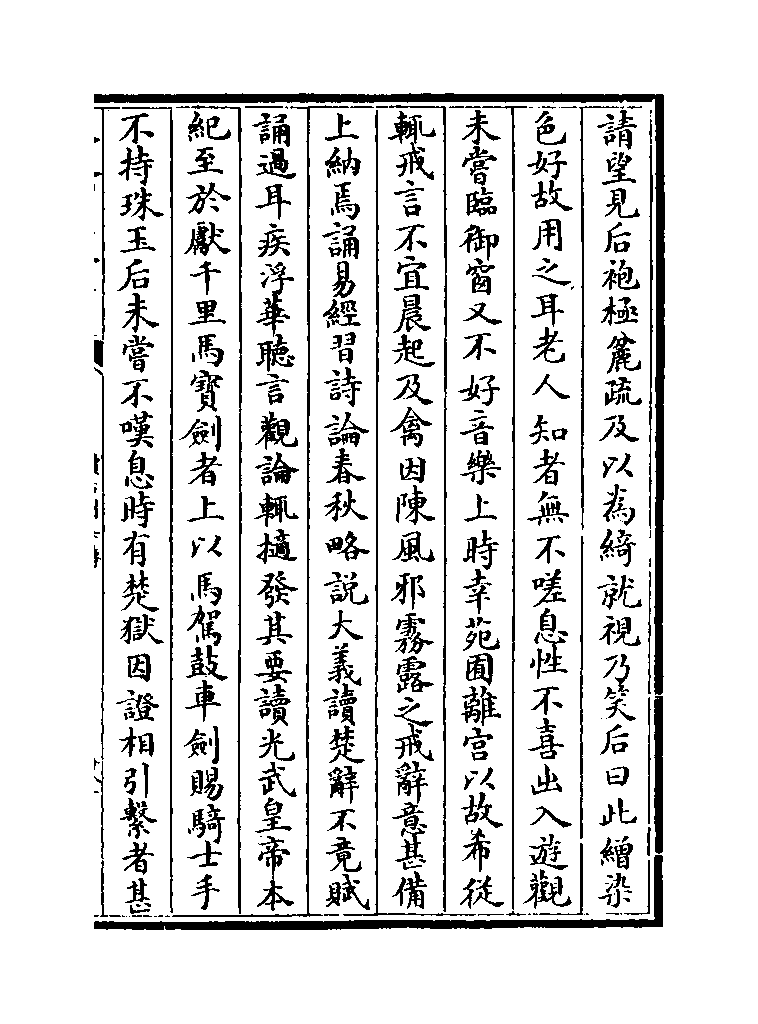 請望見后袍極麄疏反以為綺就視乃笑后曰此繒染
色好故用之耳老人知者無不嗟息性不喜出入遊觀
未嘗臨御窗又不好音樂上時幸苑囿離宮以故希從
輒戒言不宜晨起及禽因陳風邪霧露之戒辭意甚備
上納焉誦易經習詩論春秋略説大義讀楚辭不竟賦
誦過耳疾浮華聽言觀論輒擿發其要讀光武皇帝本
紀至於獻千里馬寳劍者上以馬駕鼓車劍賜騎士手
不持珠玉后未嘗不嘆息時有楚獄因證相引繫者甚